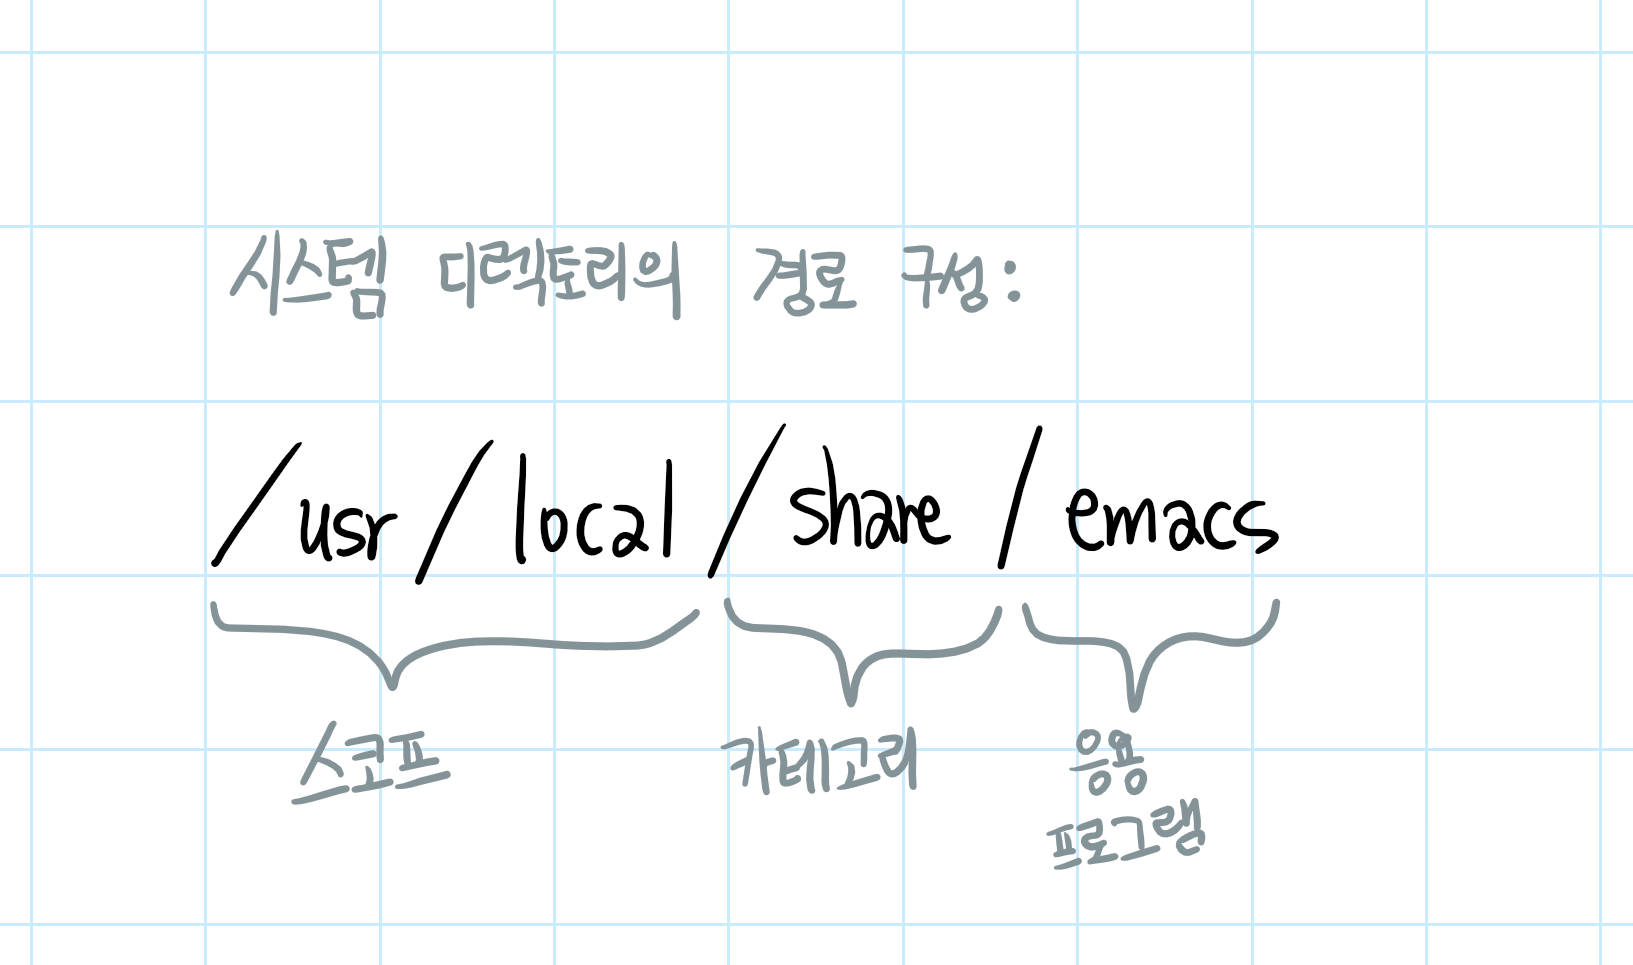 시스템 디렉토리의 경로 구성:
/usr/local/share/emacs
스코프 카테고리 응용
프로그램